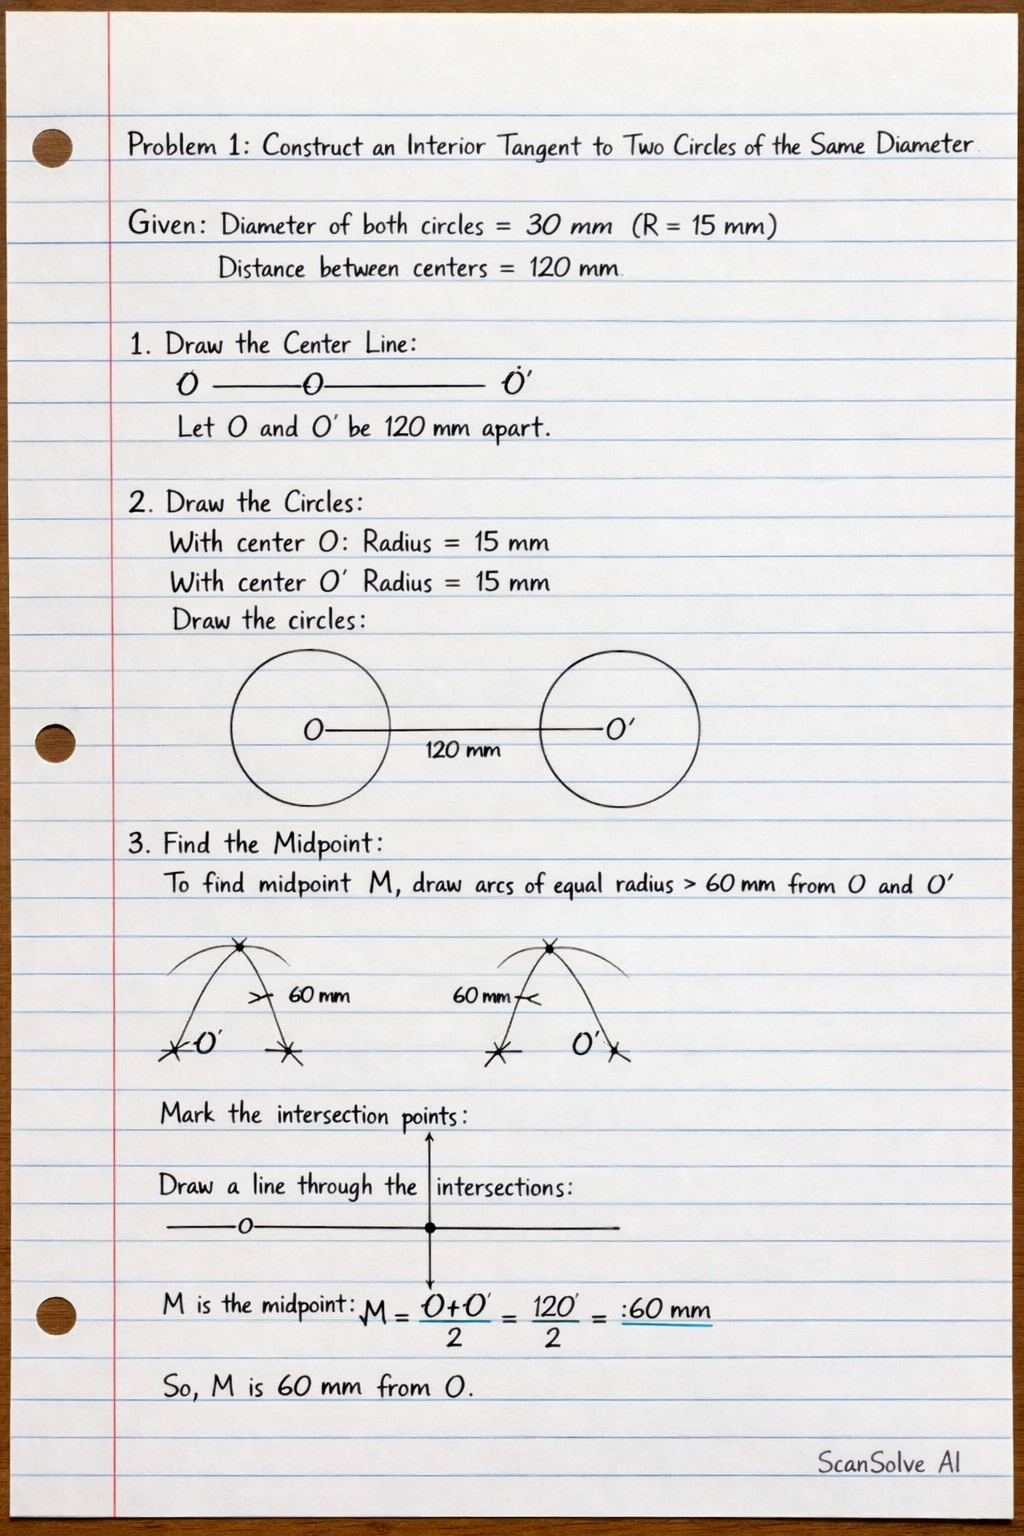 Problem 1: Construct an Interior Tangent to Two Circles of the Same Diameter
Given: Diameter of both circles = 30 mm (R = 15 mm)
Distance between centers = 120 mm.
1. Draw the Center Line:
O O O'
Let O and O' be 120 mm apart.
2. Draw the Circles:
With center O: Radius = 15 mm
With center O' Radius = 15 mm
Draw the circles:
O O'
120 mm
3. Find the Midpoint:
To find midpoint M, draw arcs of equal radius > 60 mm from O and O'
60 mm 60 mm
O' O'
Mark the intersection points:
Draw a line through the intersections:
O
M is the midpoint: M = O+O'/2 = 120'/2 = :60 mm
So, M is 60 mm from O.
ScanSolve AI